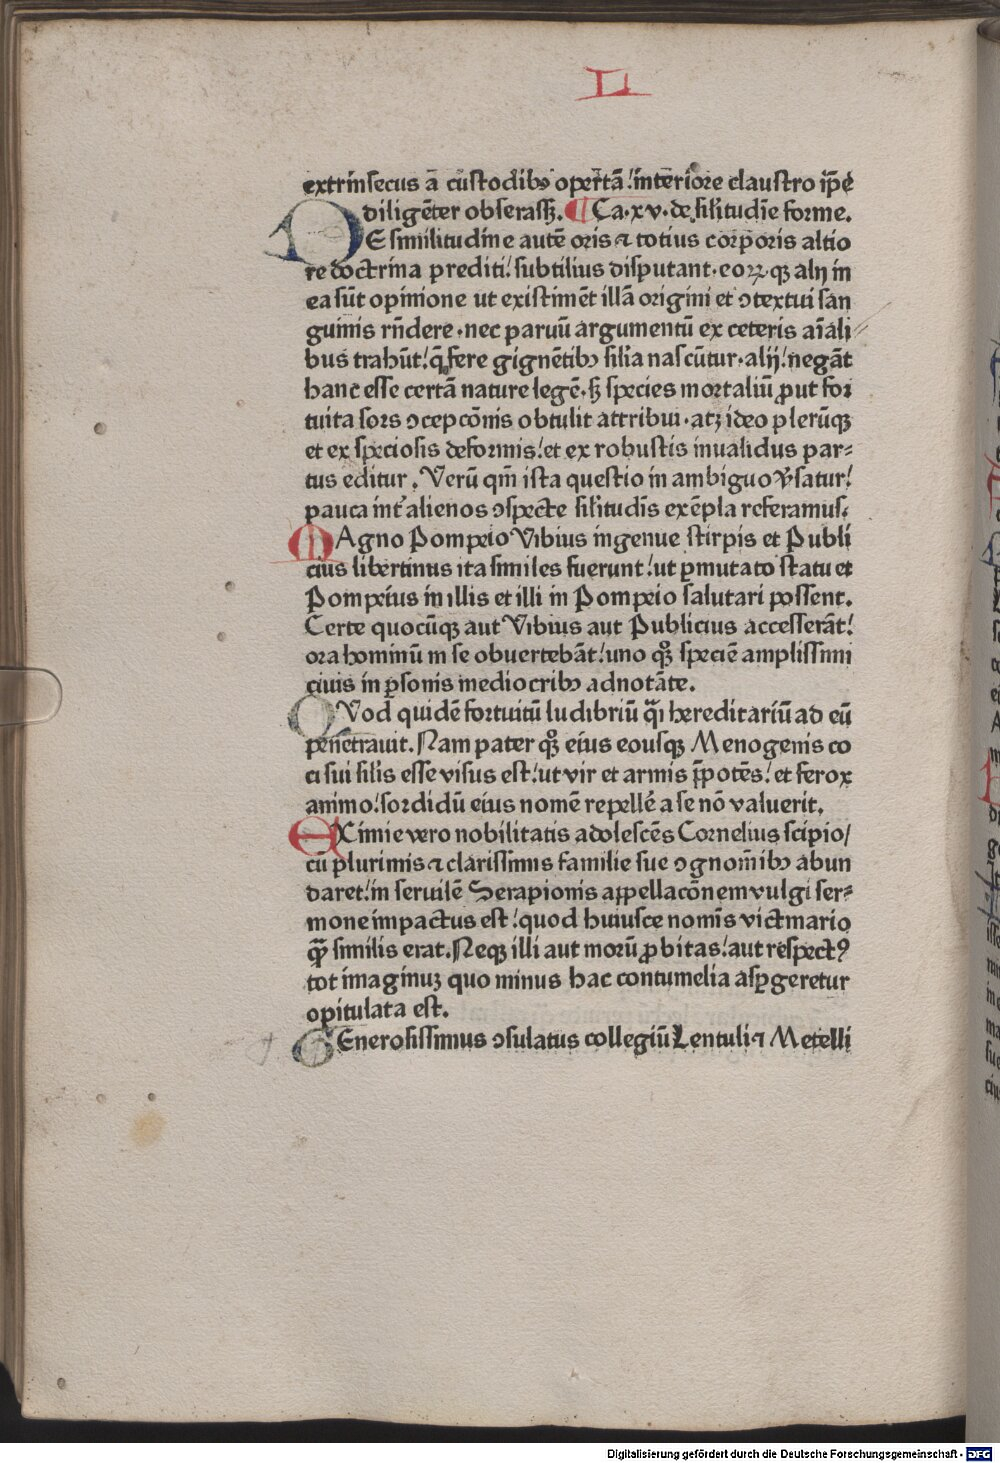 L
extrinsecus a custodibꝰ opertā! interiore claustro ip̄e
diligēter obserassꝫ. ¶ Ca·xv·de silitudīe forme.
DE similitudine autē oris ⁊ totius corporis altio
re doctrina prediti! subtilius disputant·eoꝝ·qꝫ alij in
ea sūt opinione ut existimēt illā origini et ↄtextui san
guinis rn̄dere·nec paruū argumentū ex ceteris aīali⸗
bus trahūt! q̄ fere gignētibꝰ silia nascūtur·alij! negāt
hanc esse certā nature legē·sꝫ species mortaliū ꝓut for
tuita sors ↄcepcōnis obtulit attribui·atꝫ ideo plerūqꝫ
et ex speciosis deformis! et ex robustis inualidus par⸗
tus editur. Verū qm̄ ista questio in ambiguo v̓satur!
pauca int̓ alienos ↄspecte silitudīs exēpla referamus.
MAgno Pompeio Vibius ingenue stirpis et Publi
cius libertinus ita similes fuerunt! ut ꝑmutato statu et
Pompeius in illis et illi in Pompeio salutari possent.
Certe quocūqꝫ aut Vibius aut Publicius accesserāt!
ora hominū in se obuertebāt! uno qꝫ speciē amplissimi
ciuis in ꝑsonis mediocribꝰ adnotāte.
QVod quidē fortuitū ludibriū q̄si hereditariū ad eū
penetrauit. Nam pater qꝫ eius eousqꝫ Menogenis co
ci sui silis esse visus est! ut vir et armis p̄potēs! et ferox
animo! sordidū eius nomē repellē a se nō valuerit.
EXimie vero nobilitatis adolescēs Cornelius scipio/
cū plurimis ⁊ clarissimis familie sue ↄgnoīnibꝰ abun
daret! in seruilē Serapionis appellacōnem vulgi ser⸗
mone impactus est! quod huiusce nomīs victimario
qꝫ̄ similis erat. Neqꝫ illi aut morū ꝓbitas! aut respectꝰ
tot imaginuꝫ quo minus hac contumelia asꝑgeretur
opitulata est.
GEnerosissimus ↄsulatus collegiū Lentuli ⁊ Metelli
Digitalisierung gefördert durch die Deutsche Forschungsgemeinschaft - DFG